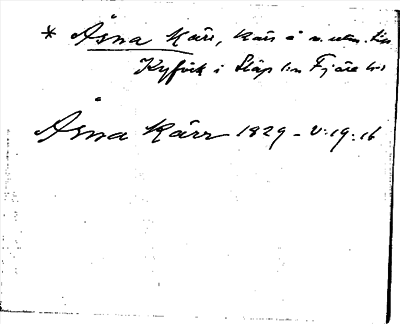 * Åsna Kärr, kärr å n. utm. t.
Kyfvik i Släp sn Fjäre hd
Åsna Kärr 1829 - V:19:16